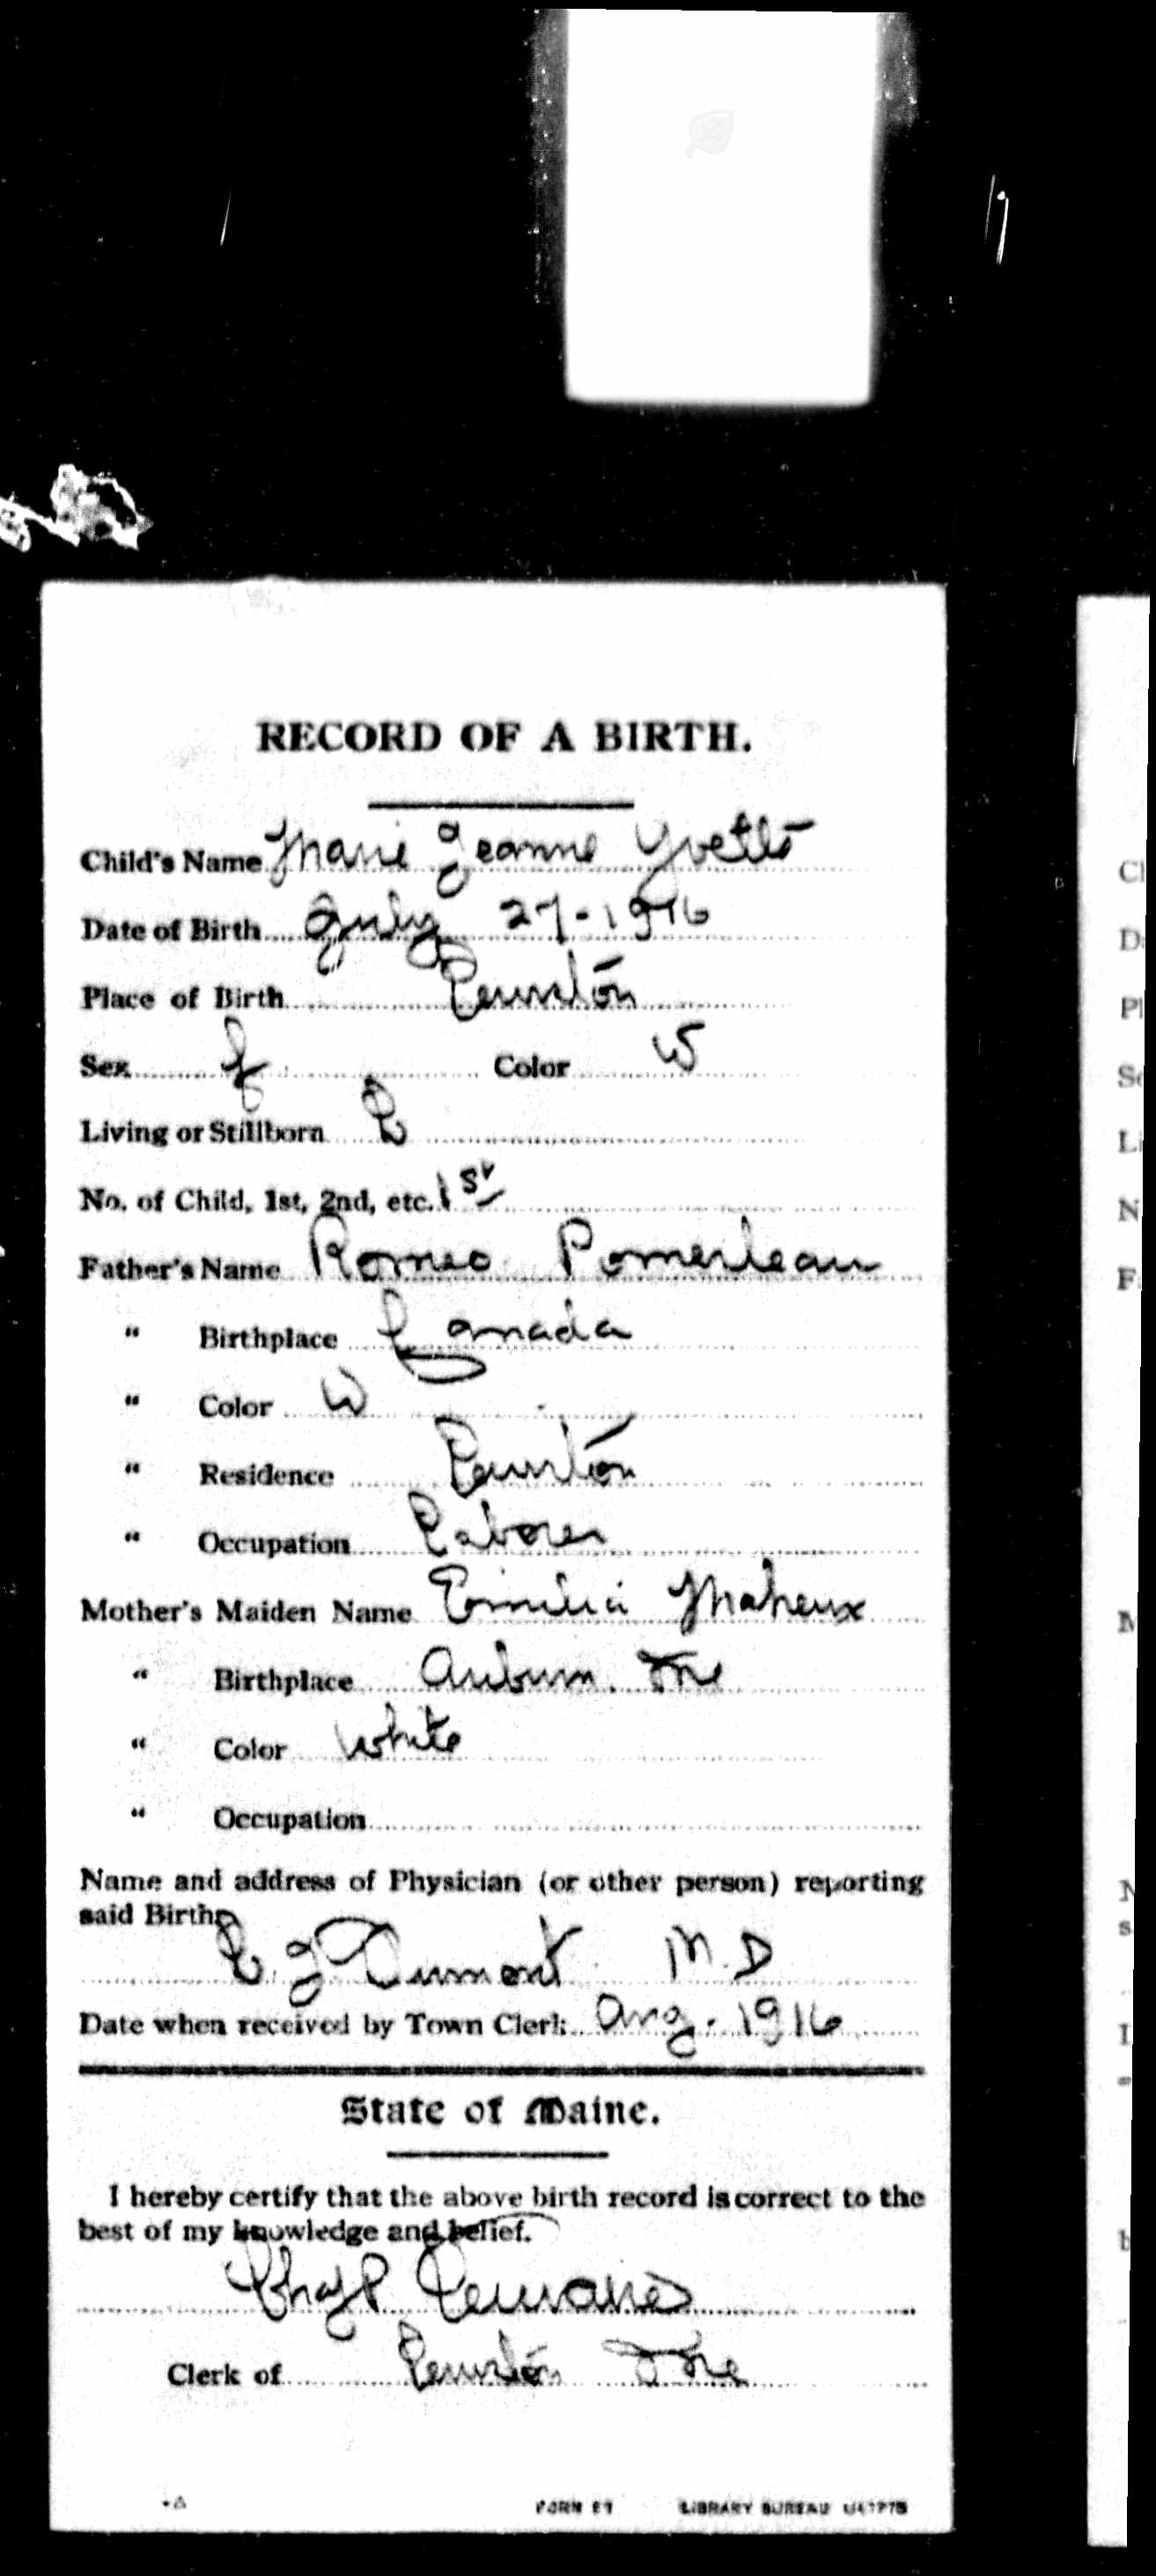 RECORD OF A BIRTH.
Child's Name Marie Jeanne Yvette
Date of Birth July 27-1916
Place of Birth Lewiston
Sex f Color W
Living or Stillborn L
No. of Child, 1st, 2nd, etc. 1st
Father's Name Romeo Pomerleau
" Birthplace Canada
" Color W
" Residence Lewiston
" Occupation Laborer
Mother's Maiden Name Emilia Maheux
" Birthplace Auburn. Me
" Color White
" Occupation
Name and address of Physician (or other person) reporting
said Birth
Dumont M.D
Date when received by Town Clerk Aug. 1916
State of Maine.
I hereby certify that the above birth record is correct to the
best of my knowledge and belief.
Chas P Lemaire
Clerk of Lewiston Me
FORM LIBRARY BUREAU